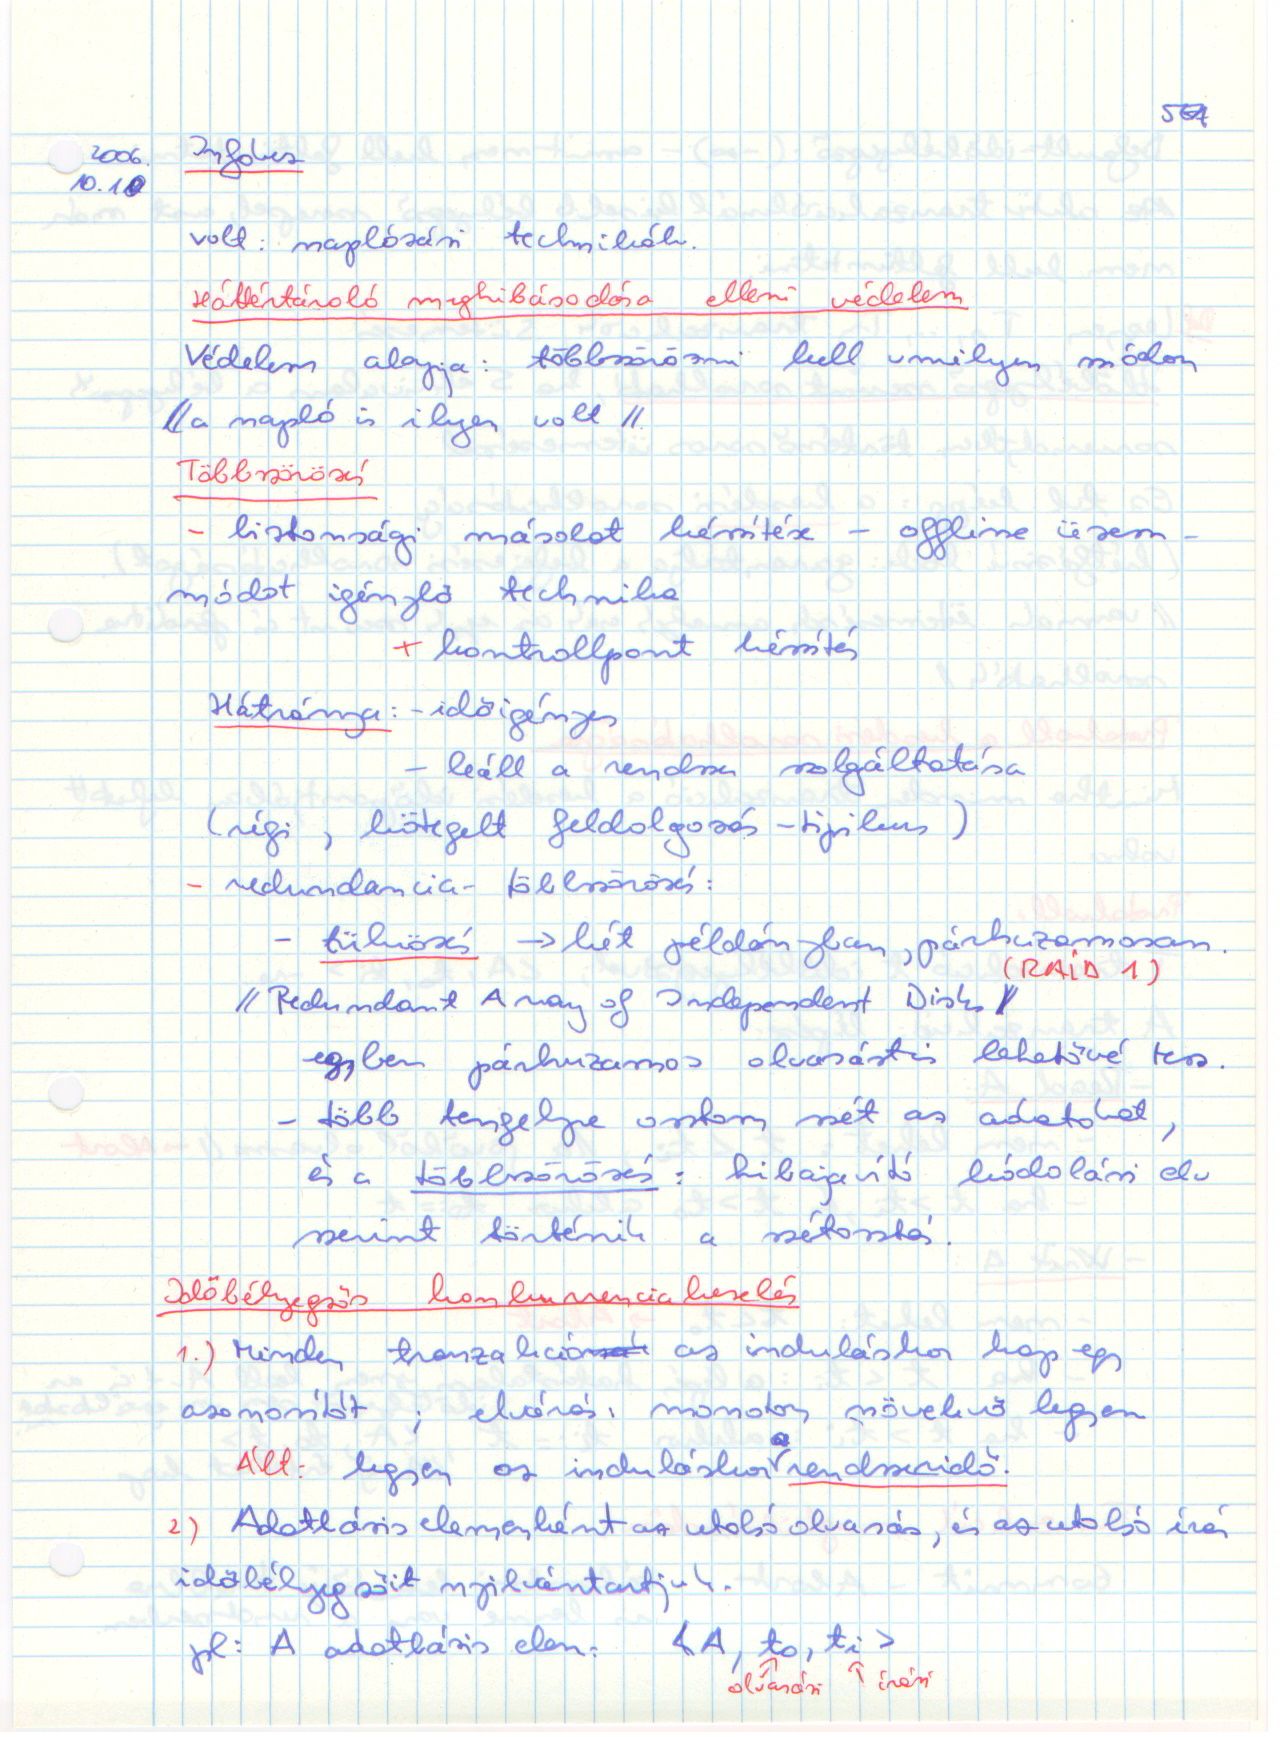 2006.
10.10
Infóbiz
volt: naplózási technikák.
Háttértároló meghibásodása elleni védelem
Védelem alapja: többszörözni kell vmilyen módon
//a napló is ilyen volt//.
Többszörözés
- biztonsági másolat készítése - offline üzem-
módot igénylő technika
+ kontrollpont készítés
Hátránya: - időigényes
- leáll a rendszer szolgáltatása
(régi, kötegelt feldolgozás - tipikus)
- redundancia - többszörözés:
- tükrözés → két példányban, párhuzamosan.
(RAID 1)
//Redundant Array of Independent Disks//
egyben párhuzamos olvasást is lehetővé tesz.
- több tengelyre osztom szét az adatokat,
és a többszörözés: hibajavító kódolási elv
szerint történik a szétosztás.
Időbélyegzős konkurrenciakezelés
1.) Minden tranzakció az induláskor kap egy
azonosítót; elvárás: monoton növekvő legyen
Ált: legyen az induláskori a rendszeridő.
2) Adatbázis elemenként az utolsó olvasás, és az utolsó írás
időbélyegzőit nyilvántartjuk.
pl: A adatbázis elem: <A, to, ti>
olvasási ↑ írási